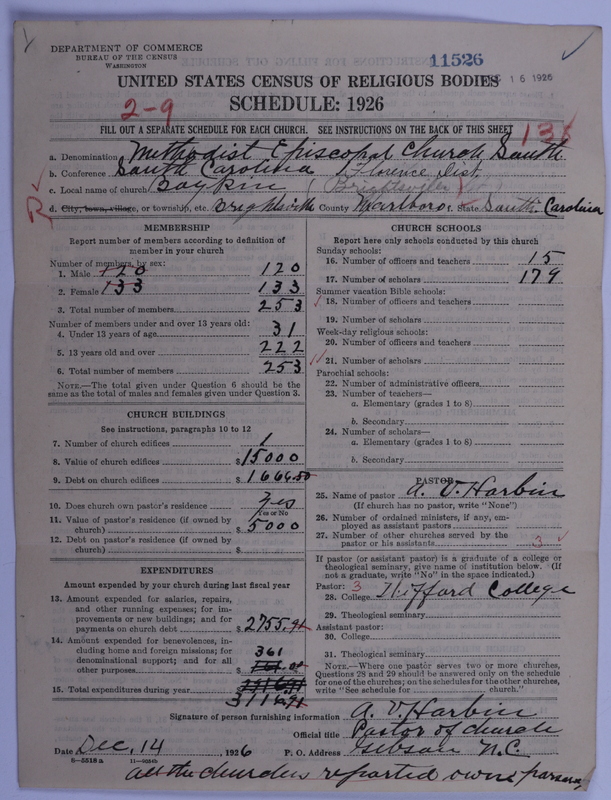 DEPARTMENT OF COMMERCE
BUREAU OF THE CENSUS
WASHINGTON
11526
16 1926
UNITED STATES CENSUS OF RELIGIOUS BODIES
SCHEDULE: 1926
2-9
FILL OUT A SEPARATE SCHEDULE FOR EACH CHURCH. SEE INSTRUCTIONS ON THE BACK OF THIS SHEET
a. Denomination Methodist Episcopal Church South
b. Conference South Carolina Florence Dist.
c. Local name of church Boykin (Brightsville
d. City, town, village, or township, etc. Brightsville County Marlboro. State South Carolina
R
MEMBERSHIP
Report number of members according to definition of
member in your church
Number of members, by sex:
1. Male 120 120
2. Female 133 133
3. Total number of members 253
Number of members under and over 13 years old:
4. Under 13 years of age 31
5. 13 years old and over 222
6. Total number of members 253
NOTE.—The total given under Question 6 should be the
same as the total of males and females given under Question 3.
CHURCH BUILDINGS
See instructions, paragraphs 10 to 12
7. Number of church edifices 1
8. Value of church edifices $15000
9. Debt on church edifices $1666.50
10. Does church own pastor's residence Yes
Yes or No
11. Value of pastor's residence (if owned by
church) $5000
12. Debt on pastor's residence (if owned by
church) $
EXPENDITURES
Amount expended by your church during last fiscal year
13. Amount expended for salaries, repairs,
and other running expenses; for im-
provements or new buildings; and for
payments on church debt $2755.91
14. Amount expended for benevolences, in-
cluding home and foreign missions; for
denominational support; and for all
other purposes 361
15. Total expenditures during year
3116.91
CHURCH SCHOOLS
Report here only schools conducted by this church
Sunday schools:
16. Number of officers and teachers 15
17. Number of scholars 179
Summer vacation Bible schools:
18. Number of officers and teachers
19. Number of scholars
Week-day religious schools:
20. Number of officers and teachers
21. Number of scholars
Parochial schools:
22. Number of administrative officers
23. Number of teachers—
a. Elementary (grades 1 to 8)
b. Secondary
24. Number of scholars—
a. Elementary (grades 1 to 8)
b. Secondary
PASTOR
25. Name of pastor A. V. Harbin
(If church has no pastor, write "None")
26. Number of ordained ministers, if any, em-
ployed as assistant pastors
27. Number of other churches served by the
pastor or his assistants 3
If pastor (or assistant pastor) is a graduate of a college or
theological seminary, give name of institution below. (If
not a graduate, write "No" in the space indicated.)
Pastor: 3
28. College Wofford College
29. Theological seminary
Assistant pastor:
30. College
31. Theological seminary
NOTE.—Where one pastor serves two or more churches,
Questions 28 and 29 should be answered only on the schedule
for one of the churches; on the schedules for the other churches,
write "See schedule for church."
Signature of person furnishing information A. V. Harbin
Official title Pastor of church
Date Dec. 14, 1926 P. O. Address Gibson N.C.
8-5518 a
all the churches reported owns parson